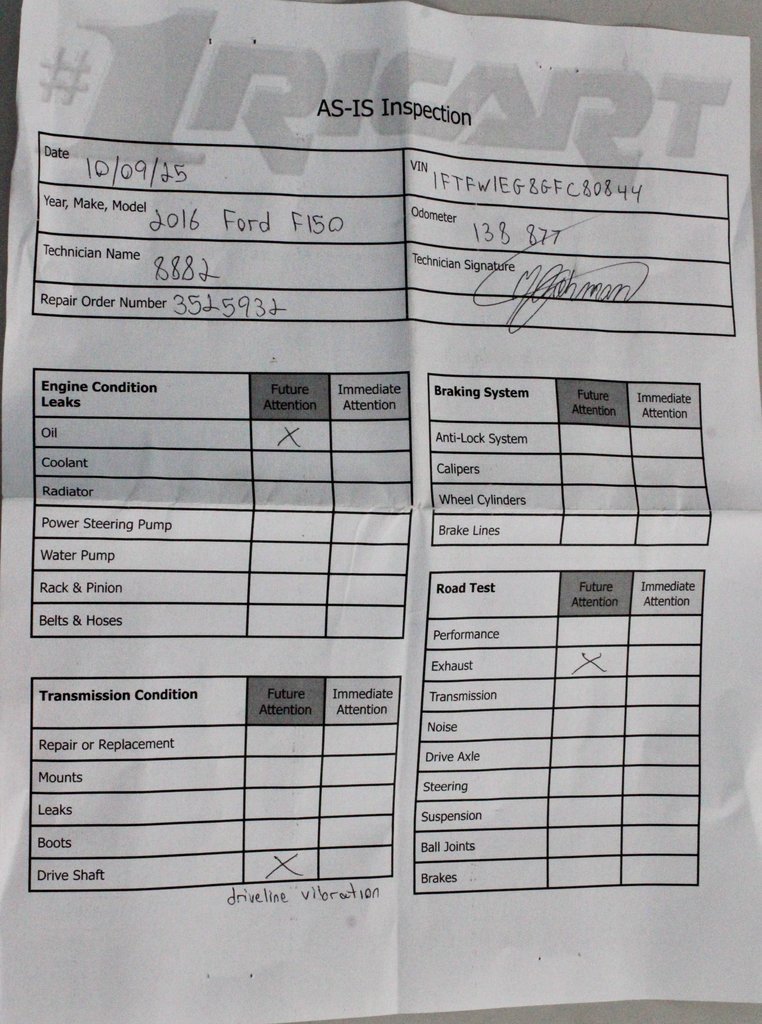 #1 RICART
AS-IS Inspection
Date 10/09/25
VIN 1FTFW1EG8GFC80844
Year, Make, Model 2016 Ford F150
Odometer 138 877
Technician Name 8882
Technician Signature
Repair Order Number 3525932
Engine Condition Leaks Future Attention Immediate Attention
Oil X
Coolant
Radiator
Power Steering Pump
Water Pump
Rack & Pinion
Belts & Hoses
Braking System Future Attention Immediate Attention
Anti-Lock System
Calipers
Wheel Cylinders
Brake Lines
Transmission Condition Future Attention Immediate Attention
Repair or Replacement
Mounts
Leaks
Boots
Drive Shaft X
driveline vibration
Road Test Future Attention Immediate Attention
Performance
Exhaust X
Transmission
Noise
Drive Axle
Steering
Suspension
Ball Joints
Brakes